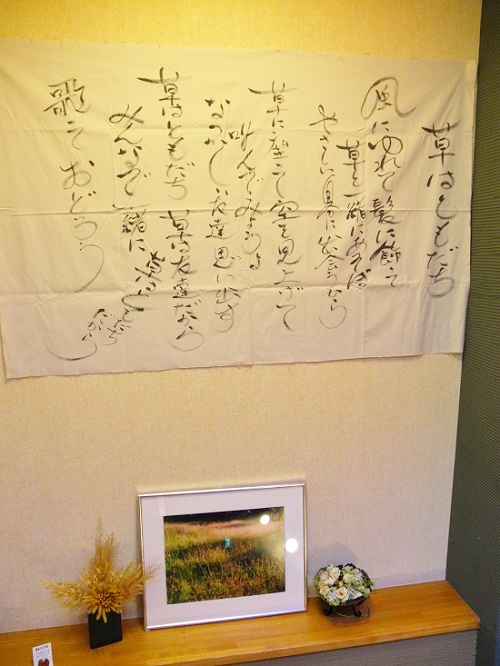 草はともだち
風にゆれて髪に飾って
草と一緒にあそぼ
やさしい風に出会うから
草に座って空を見上げて
叫んでみましょう
なつかしい友達思い出す
草はともだち 草は友達だから
みんなで一緒に
歌っておどろう